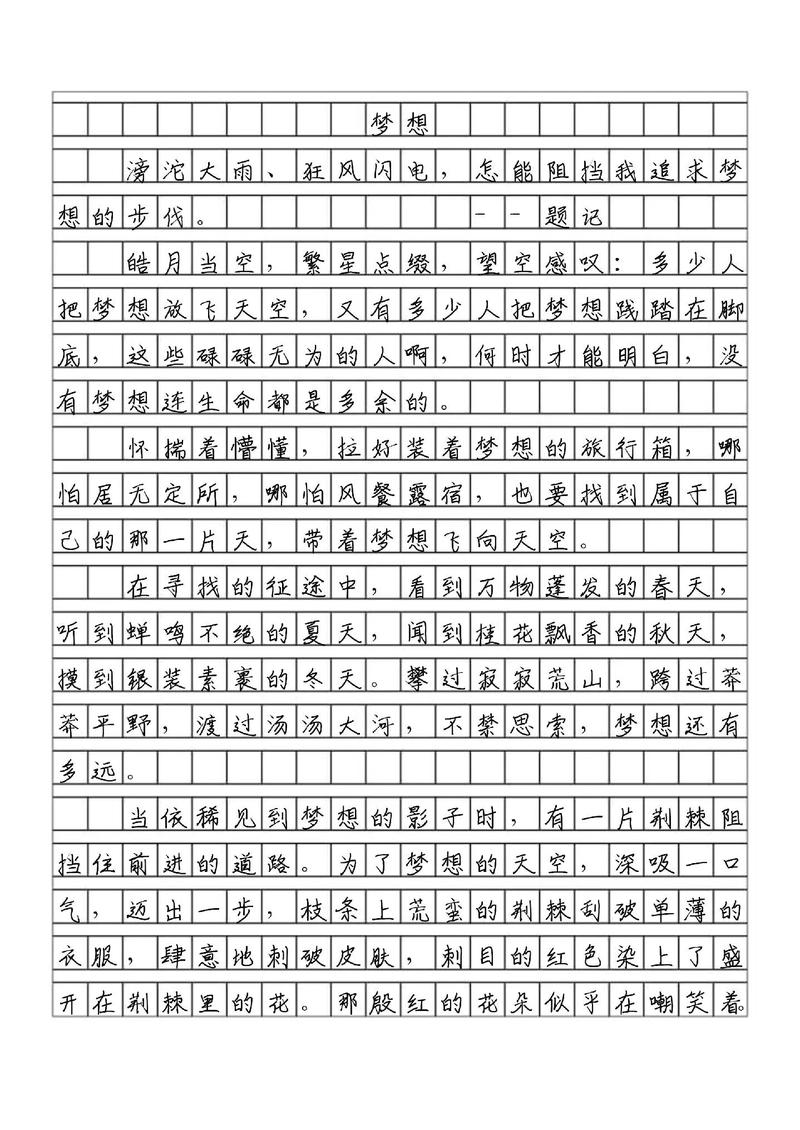 梦想
滂沱大雨、狂风闪电，怎能阻挡我追求梦
想的步伐。 --题记
皓月当空，繁星点缀，望空感叹：多少人
把梦想放飞天空，又有多少人把梦想践踏在脚
底，这些碌碌无为的人啊，何时才能明白，没
有梦想连生命都是多余的。
怀揣着懵懂，拉好装着梦想的旅行箱，哪
怕居无定所，哪怕风餐露宿，也要找到属于自
己的那一片天，带着梦想飞向天空。
在寻找的征途中，看到万物蓬发的春天，
听到蝉鸣不绝的夏天，闻到桂花飘香的秋天，
摸到银装素裹的冬天。攀过寂寂荒山，跨过莽
莽平野，渡过汤汤大河，不禁思索，梦想还有
多远。
当依稀见到梦想的影子时，有一片荆棘阻
挡住前进的道路。为了梦想的天空，深吸一口
气，迈出一步，枝条上荒蛮的荆棘刮破单薄的
衣服，肆意地刺破皮肤，刺目的红色染上了盛
开在荆棘里的花。那殷红的花朵似乎在嘲笑着。